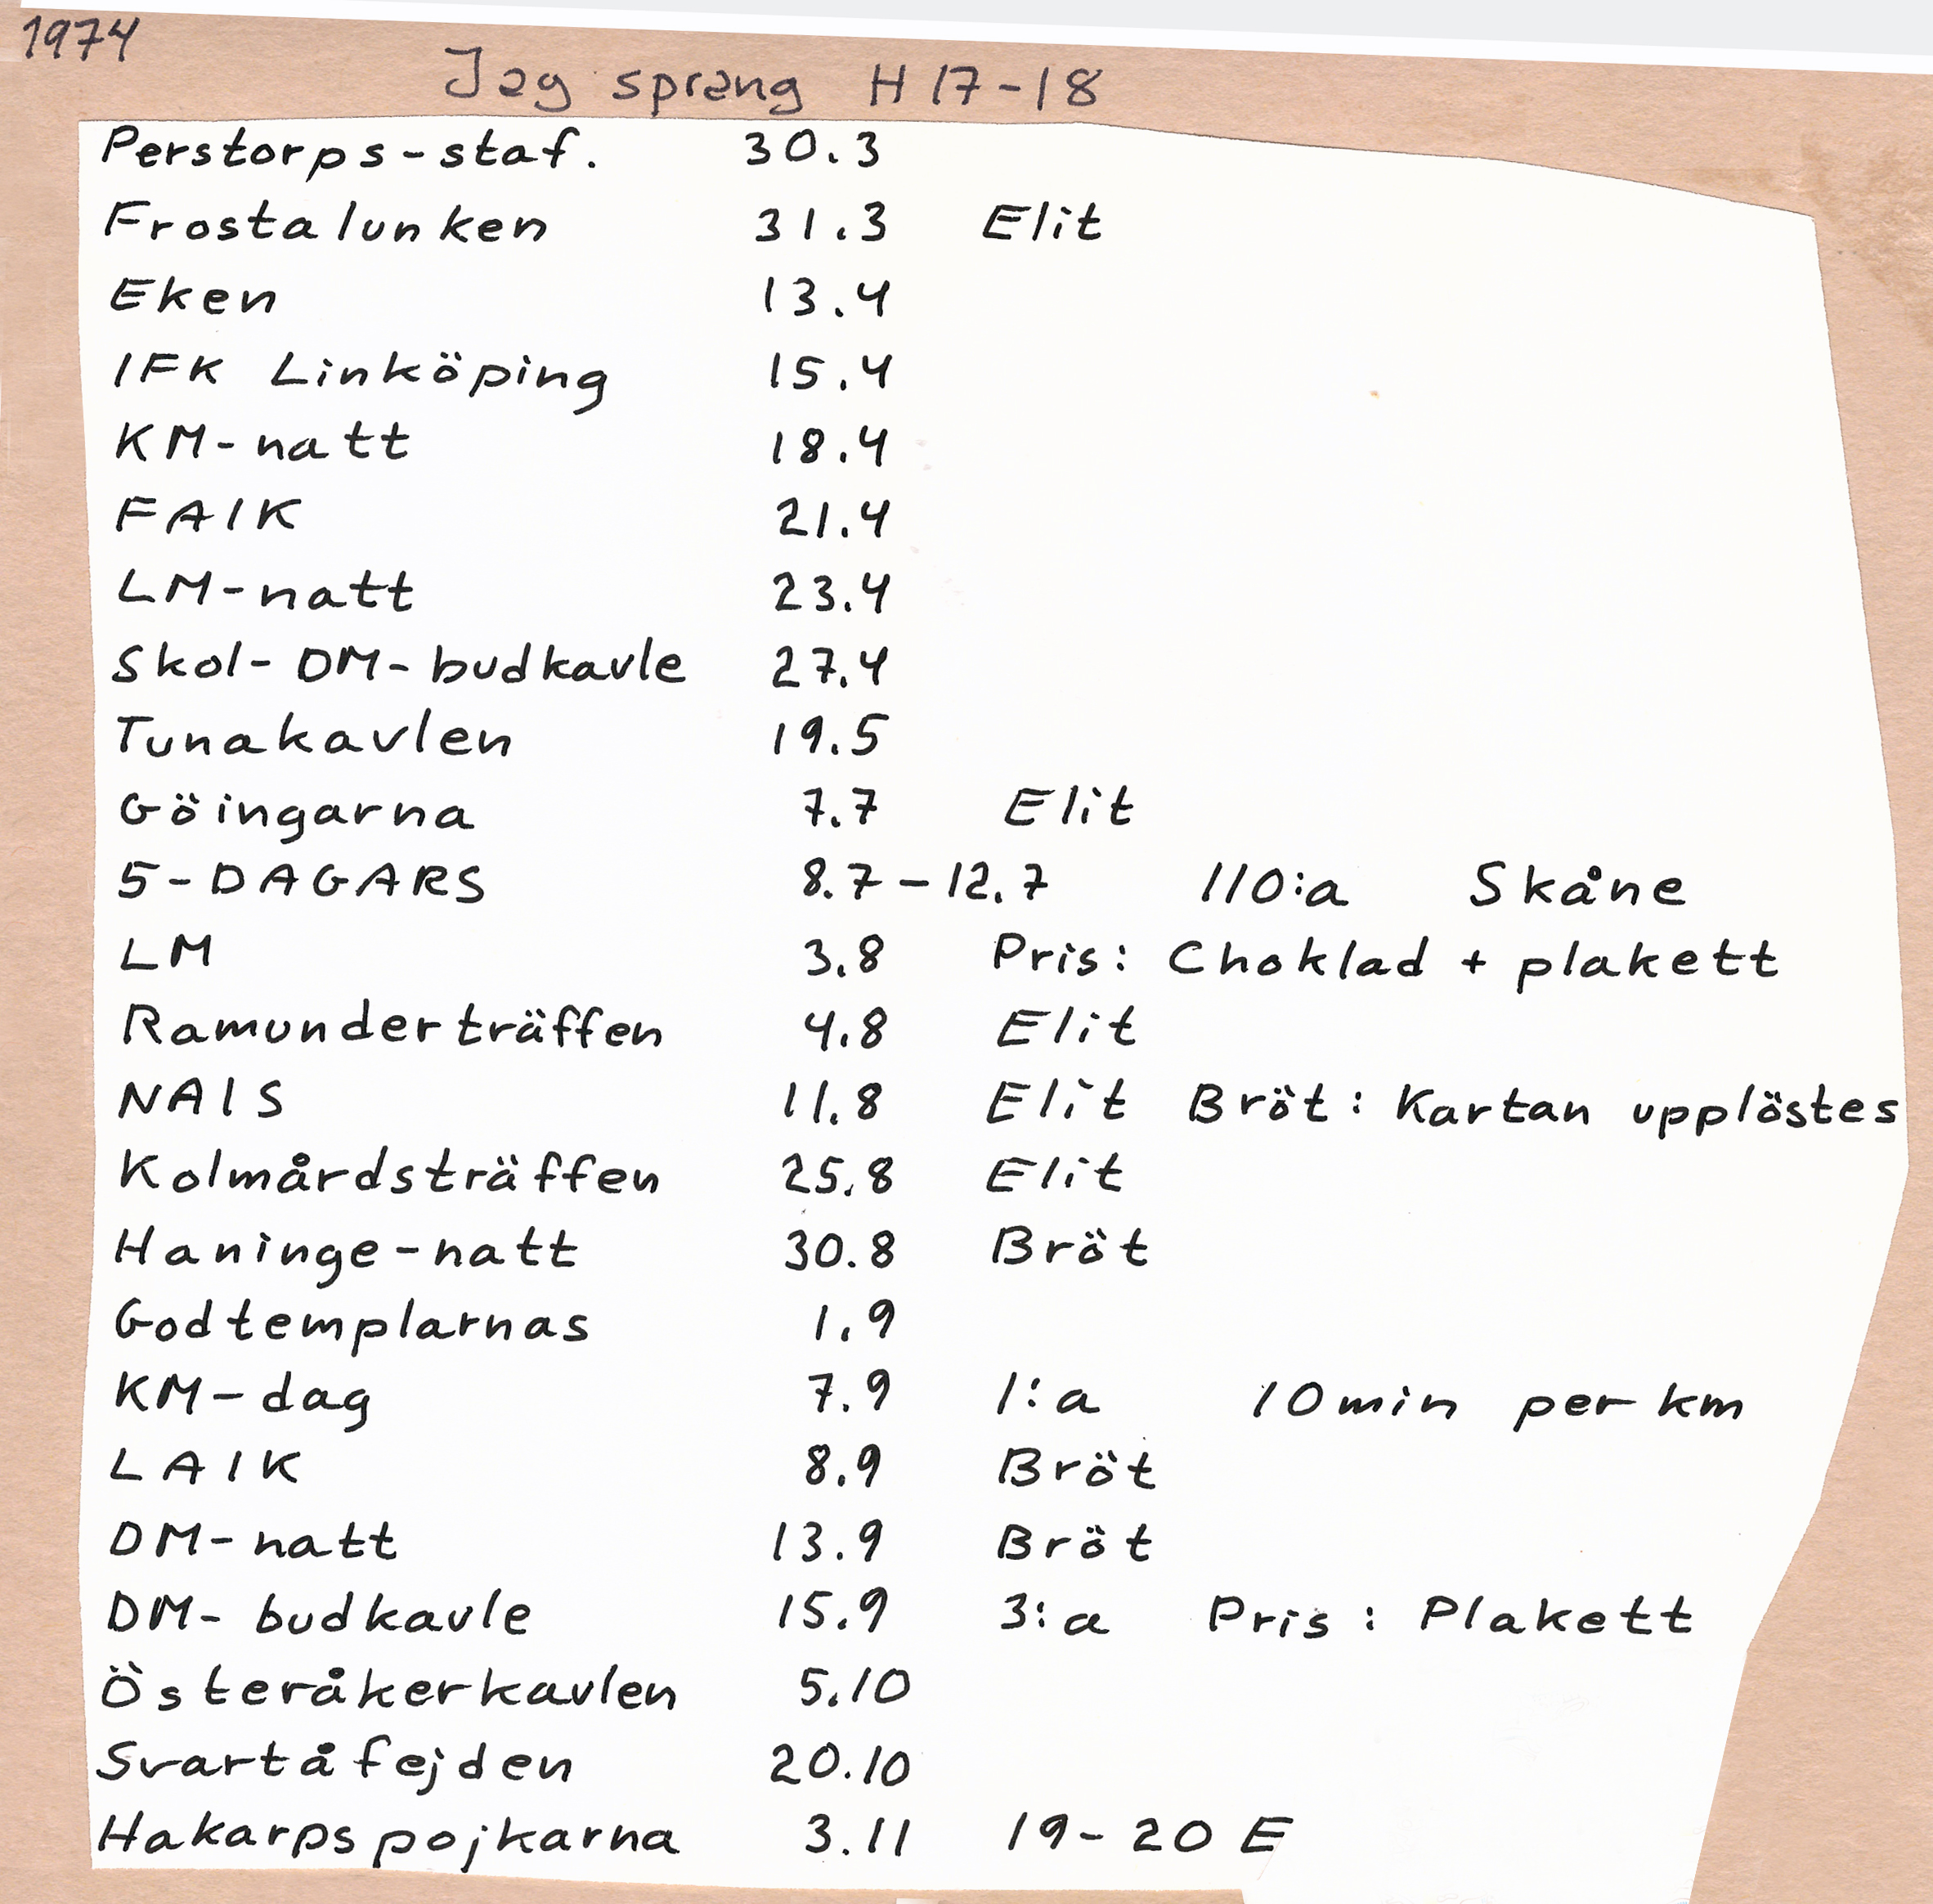 1974
Jag sprang H 17-18
Perstorps-staf. 30.3
Frostalunken 31.3 Elit
Eken 13.4
IFK Linköping 15.4
KM-natt 18.4
FAIK 21.4
LM-natt 23.4
Skol-DM-budkavle 27.4
Tunakavlen 19.5
Göingarna 7.7 Elit
5-DAGARS 8.7-12.7 110:a Skåne
LM 3.8 Pris: Choklad + plakett
Ramunderträffen 4.8 Elit
NAIS 11.8 Elit Bröt: Kartan upplöstes
Kolmårdsträffen 25.8 Elit
Haninge-natt 30.8 Bröt
Godtemplarnas 1.9
KM-dag 7.9 1:a 10min per km
LAIK 8.9 Bröt
DM-natt 13.9 Bröt
DM-budkavle 15.9 3:a Pris: Plakett
Österåkerkavlen 5.10
Svartåfejden 20.10
Hakarpspojkarna 3.11 19-20 E